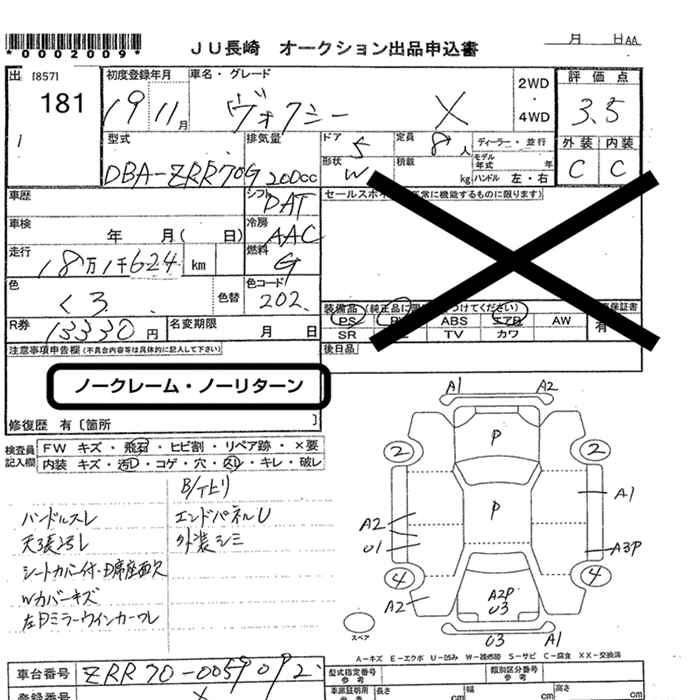 *0002009* JU長崎 オークション出品申込書 月 日AA
出 [857] 初度登録年月 車名・グレード 2WD・4WD 評価点
181 19 11月 ヴォクシー X 3.5
1 型式 排気量 ドア 5 定員 8人 ディーラー・並行 外装 内装
DBA-ZRR70G 2000cc 形状 W 積載 kg モデル年式 年 ハンドル 左・右 C C
車歴 シフト DAT セールスポイント(正常に機能するものに限ります)
車検 年 月( 日) 冷房 AAC
走行 18万1千624 km 燃料 G
色 くろ 色替 色コード 202
装備品 (純正品に限り○をつけてください) 保証書
R券 13330円 名変期限 月 日 PS PW ABS エアB AW 有
SR TV カワ
注意事項申告欄(不具合内容等は具体的に記入して下さい) 後日品
ノークレーム・ノーリターン
修復歴 有〔箇所 〕
検査員 FW キズ・飛石・ヒビ割・リペア跡・×要
記入欄 内装 キズ・汚D・コゲ・穴・スレ・キレ・破レ
ハンドルスレ エンドパネルU
天張ヨゴレ 外装シミ
シートカバー付・D席座面欠
Wカバーキズ
左Dミラーウインカーワレ
A1 A2
P
2 2
P A1
A2
U1 A3P
4 4
A2 A2P
U3
スペア U3 A1
A-キズ E-エクボ U-凹み W-補修跡 S-サビ C-腐食 XX-交換済
車台番号 ZRR70-0059092 型式指定番号 参考 類別区分番号 参考
登録番号 X 車庫証明用 参考 長さ cm 幅 cm 高さ cm